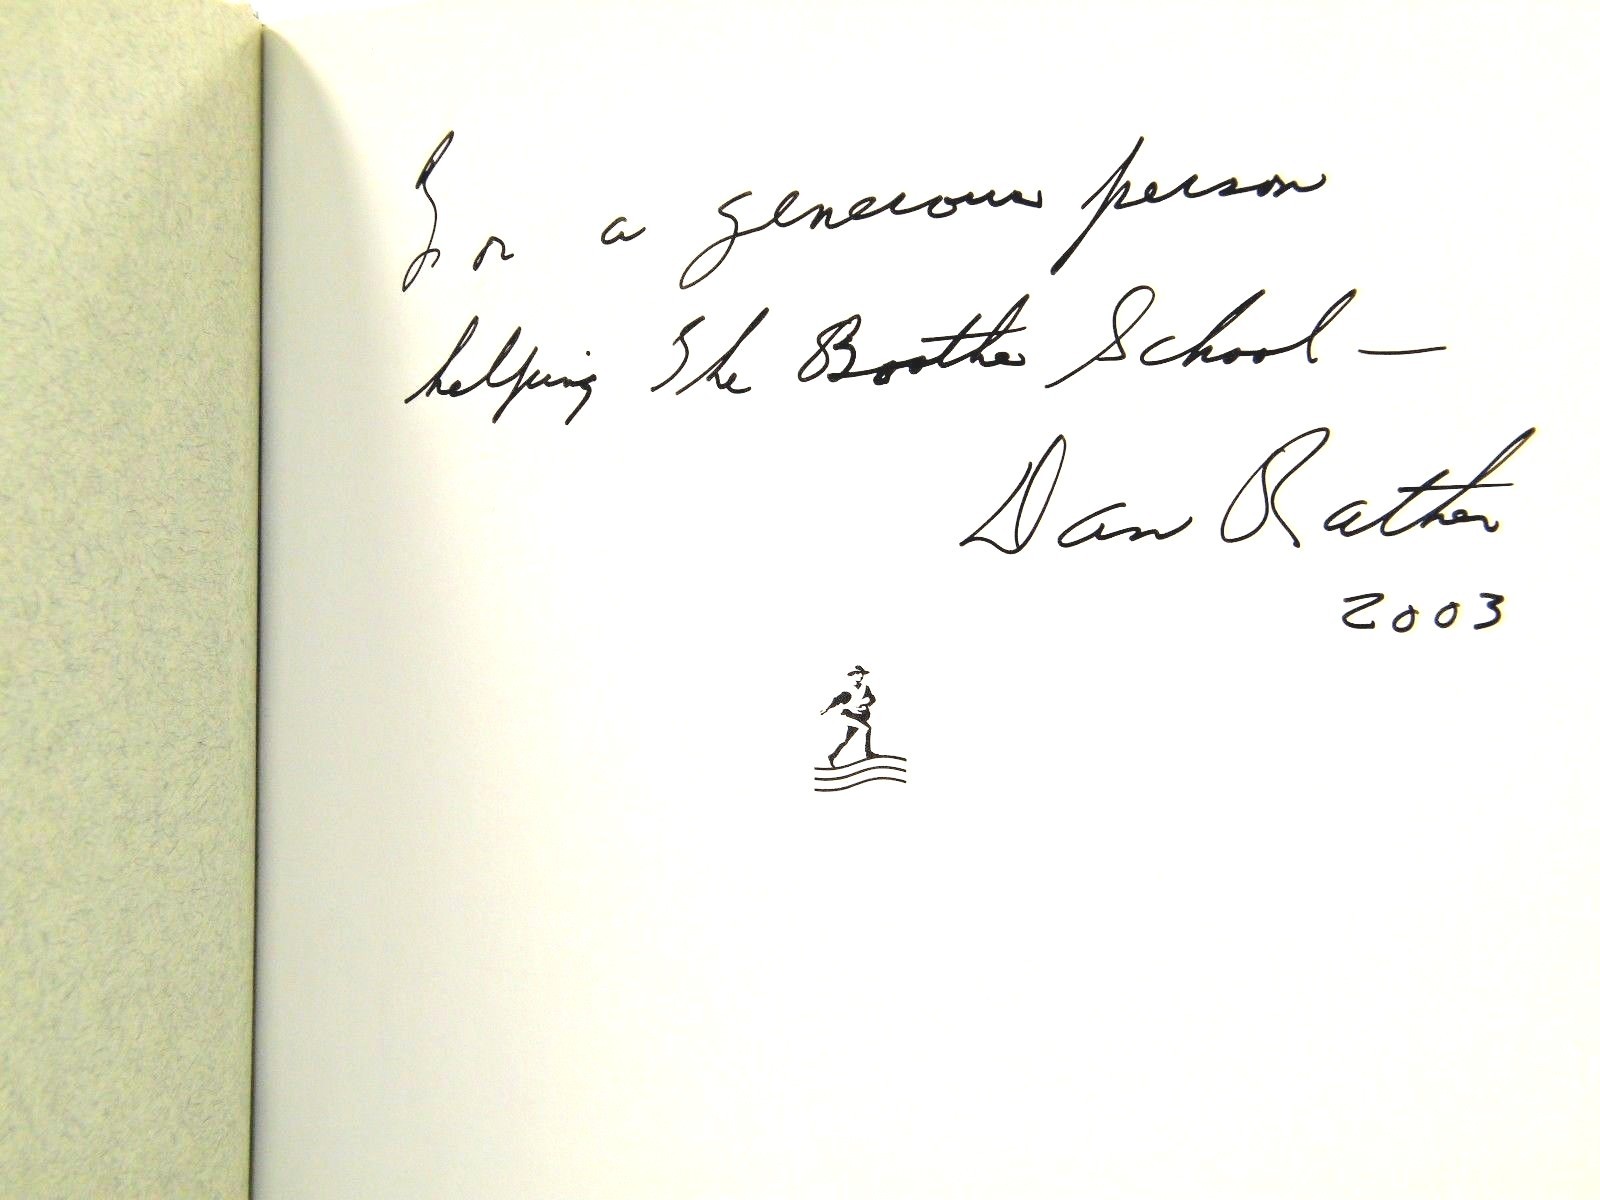 For a generous person
helping The Boothe School —
Dan Rather
2003